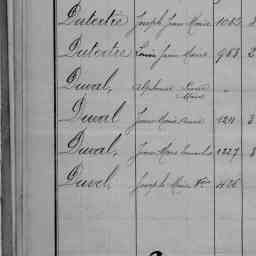 Dutertre Joseph Jean Marie 1063
Dutertre Louis Jean Marie 963
Duval, Alphonse Pierre Marie "
Duval Jean Marie 1211
Duval, Jean Marie 1227
Duvel Joseph Marie Vor 426